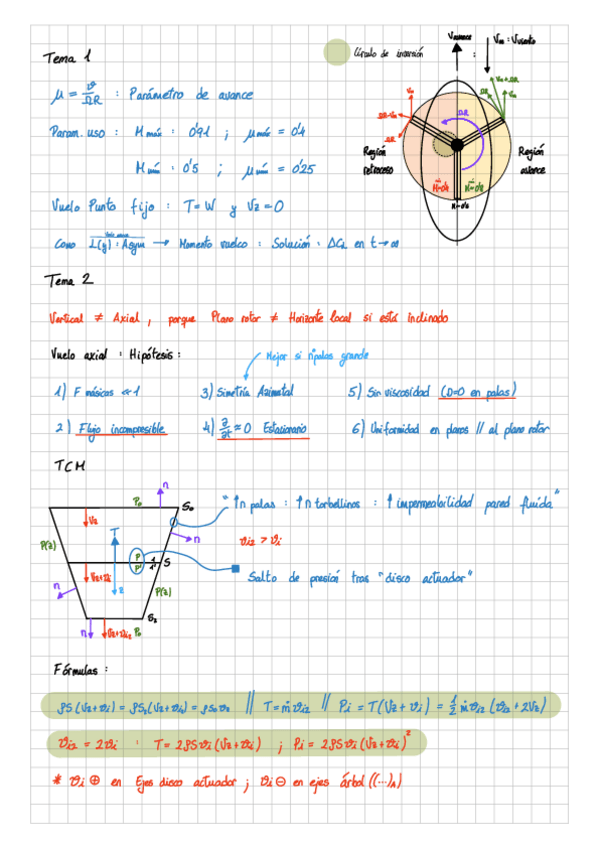 Tema 1
Círculo de inversión :
Vavance
V∞ : Vviento
μ = v/ΩR : Parámetro de avance
Param. uso : Mmáx = 0'91 ; μmáx = 0'4
Mmín = 0'5 ; μmín = 0'25
Vuelo Punto fijo : T=W y Vz=0
Como L(y) : Asym → Momento vuelco : Solución : ΔCL en t→∞
V∞+ΩR
V∞
ΩR-V∞
ΩR
ΩR
Región retroceso
Región avance
Tema 2
Vertical ≠ Axial, porque Plano rotor ≠ Horizonte local si está inclinado
Vuelo axial : Hipótesis :
Mejor si nºpalas grande
1) F másicas ≪1 3) Simetría Azimutal 5) Sin viscosidad (D=0 en palas)
2) Flujo incompresible 4) ∂/∂t ≈ 0 Estacionario 6) Uniformidad en planos // al plano rotor
TCM
n
P₀
S₀
Vz
T
P(z)
n
P
P'
S
Vz+vi
z
P(z)
n
S₂
n
Vz+vi₂
P₀
"↑n palas : ↑n torbellinos : ↑ impermeabilidad pared fluida"
vi₂ > vi
Salto de presión tras "disco actuador"
Fórmulas :
ρS(Vz+vi) = ρS₂(Vz+vi₂) = ρS₀vz // T=ṁvi₂ // Pi = T(Vz+vi) = 1/2 ṁvi₂(vi₂+2Vz)
vi₂ = 2vi : T = 2ρSvi(Vz+vi) ; Pi = 2ρSvi(Vz+vi)²
* vi ⊕ en Ejes disco actuador ; vi ⊖ en ejes árbol ((...)A)